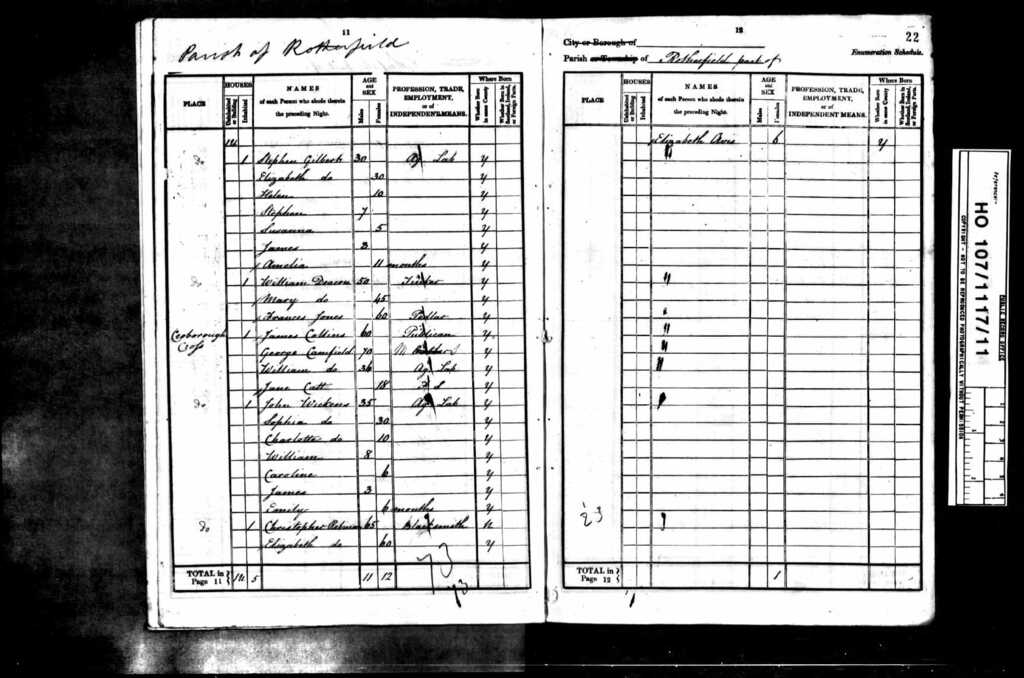 11
Parish of Rotherfield
PLACE
HOUSES
Uninhabited or Building
Inhabited
NAMES
of each Person who abode therein
the preceding Night.
AGE
and
SEX
Males
Females
PROFESSION, TRADE,
EMPLOYMENT,
or of
INDEPENDENT MEANS.
Where Born
Whether Born in same County
Whether Born in Scotland, Ireland, or Foreign Parts.
1U
do 1 Stephen Gilbert 30 Ag Lab y
Elizabeth do 30 y
Helen 10 y
Stephen 7 y
Susanna 5 y
James 3 y
Amelia 11 months y
do 1 William Deacon 50 y
Mary do 45 y
Frances Jones 60 Pedlar y
Crowborough Cross 1 James Collins 60 Publican y
George Camfield 70 y
William do 36 Ag Lab y
Jane Catt 18 F S y
do 1 John Wickens 35 Ag Lab y
Sophia do 30 y
Charlotte do 10 y
William 8 y
Caroline 6 y
James 3 y
Emily 6 months y
do 1 Christopher 65 Blacksmith n
Elizabeth do 60 y
73
73
TOTAL in
Page 11
1U 5 11 12
12
22
City or Borough of
Enumeration Schedule.
Parish or Township of Rotherfield part of
PLACE
HOUSES
Uninhabited or Building
Inhabited
NAMES
of each Person who abode therein
the preceding Night.
AGE
and
SEX
Males
Females
PROFESSION, TRADE,
EMPLOYMENT,
or of
INDEPENDENT MEANS.
Where Born
Whether Born in same County
Whether Born in Scotland, Ireland, or Foreign Parts.
Elizabeth Avis 6 y
23
TOTAL in
Page 12
1
Reference:-
HO 107/1117/11
COPYRIGHT - NOT TO BE REPRODUCED PHOTOGRAPHICALLY WITHOUT PERMISSION
PUBLIC RECORD OFFICE